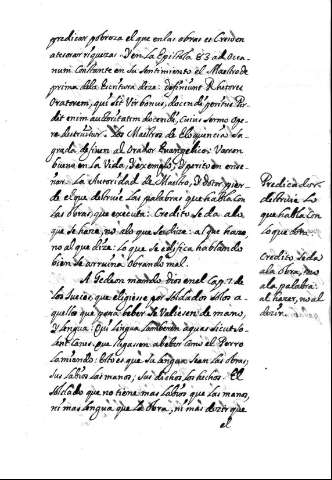 predicar pobreza el que en las obras es Creiden
atesorar riquezas. Y en la Epistola 83 ad Ocea
num Constante en su Sentimiento el Maestro de
prima de la Escritura dize: definiunt Rhetores
Oratorem, qui sit Vir bonus, docendi peritus Per
dit enim authoritatem docendi, Cuius sermo ope
re destruitur. Los Maestros de Eloquencia Sa
grada definen al Orador Evangelico: Varon
bueno en la Vida, y exemplo, y perito en ense
ñar. La Autoridad de Maestro, y Dotor pier
de el que destruie Las palabras que habla con
Las obras, que executa. Credito se da alo
que se haze, no alo que se dize: al que haze,
no al que dize. Lo que se edifica hablando
bien se arruina Obrando mal.
A Gedeon mandò Dios en el Cap. 7 de
los Jueces, que eligiese por Soldados Solos a
quellos que para beber se Valiesen de mano,
y Lengua: Qui Lingua lambuerint aguas sicut so
lent Canes, que llegasen a beber como el Perro
Lamiendo. Esto es que Su Lengua Sean Las Obras,
sus Labios Las manos, Sus dichos Los hechos. El
Soldado que no tiene mas Labios que Las manos,
ni mas Lengua que La Obra, ni mas dezir que
el
Predicador
destruie Lo
que habla con
Lo que obra.
Credito Se da
a la Obra, no
a la palabra:
al hazer, no al
dezir.